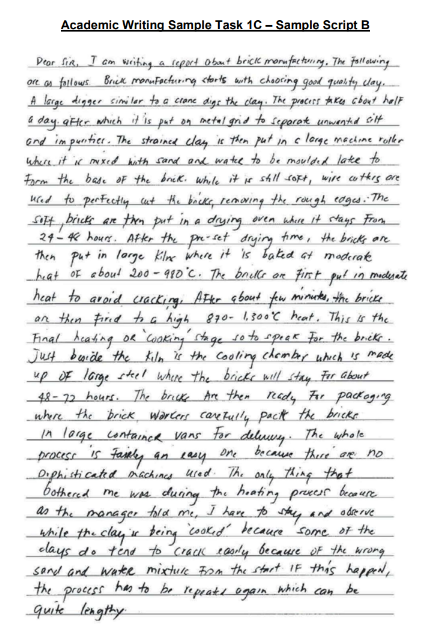 Academic Writing Sample Task 1C – Sample Script B
Dear Sir, I am writing a report about brick manufacturing. The following
are as follows. Brick manufacturing starts with choosing good quality clay.
A large digger similar to a crane digs the clay. The process takes about half
a day. After which it is put on metal grid to separate unwanted silt
and impurities. The strained clay is then put in a large machine roller
where it is mixed with sand and water to be moulded late to
form the base of the brick. While it is still soft, wire cutters are
used to perfectly cut the bricks, removing the rough edges. The
soft bricks are then put in a drying oven where it stays from
24-48 hours. After the pre-set drying time, the bricks are
then put in large kiln where it is baked at moderate
heat of about 200-980°C. The bricks are first put in moderate
heat to avoid cracking. After about few minutes, the bricks
are then fired to a high 870-1,300°C heat. This is the
final heating or 'cooking' stage so to speak for the bricks.
Just beside the kiln is the cooling chamber which is made
up of large steel where the bricks will stay for about
48-72 hours. The bricks are then ready for packaging
where the brick workers carefully pack the bricks
in large container vans for delivery. The whole
process is fairly an easy one because there are no
sophisticated machines used. The only thing that
bothered me was during the heating process because
as the manager told me, I have to stay and observe
while the clay is being 'cooked' because some of the
clays do tend to crack easily because of the wrong
sand and water mixture from the start. If this happen,
the process has to be repeated again which can be
quite lengthy.